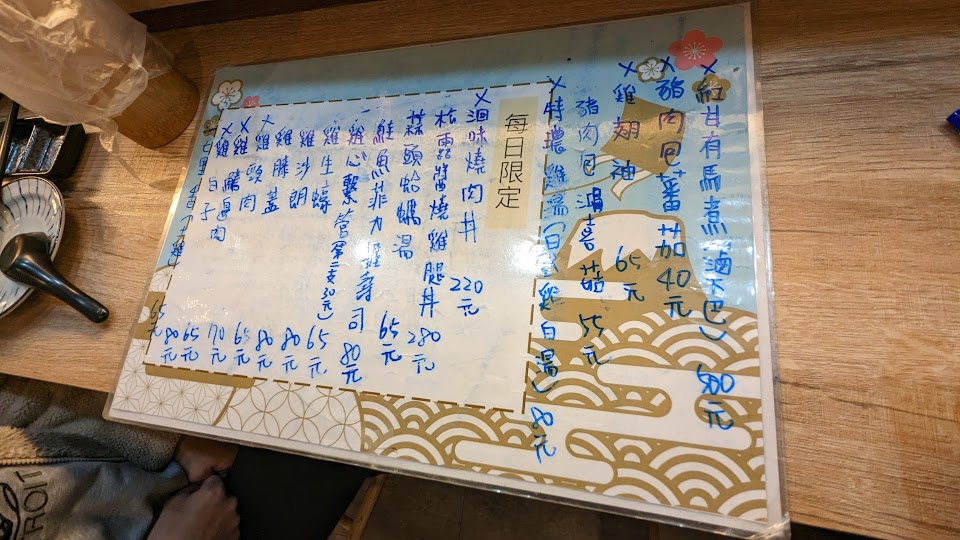 X 紅甘有馬煮(滷下巴) 500元
X 豬肉卷+番茄 40元
X 雞翅神 65元
豬肉卷鴻喜菇 55元
X 特濃雞湯(白玉雞白湯) 80元
每日限定
X 洄味燒肉丼 220元
松露醬燒雞腿丼 280元
蒜頭蛤蠣湯 65元
鮭魚菲力握壽司 80元
雞心繫管(第二支30元) 65元
雞生蠔 80元
雞沙朗 80元
雞膝蓋 65元
X 雞頸肉 70元
X 雞腱肉 65元
X 雞白子 80元
65元
ROIT